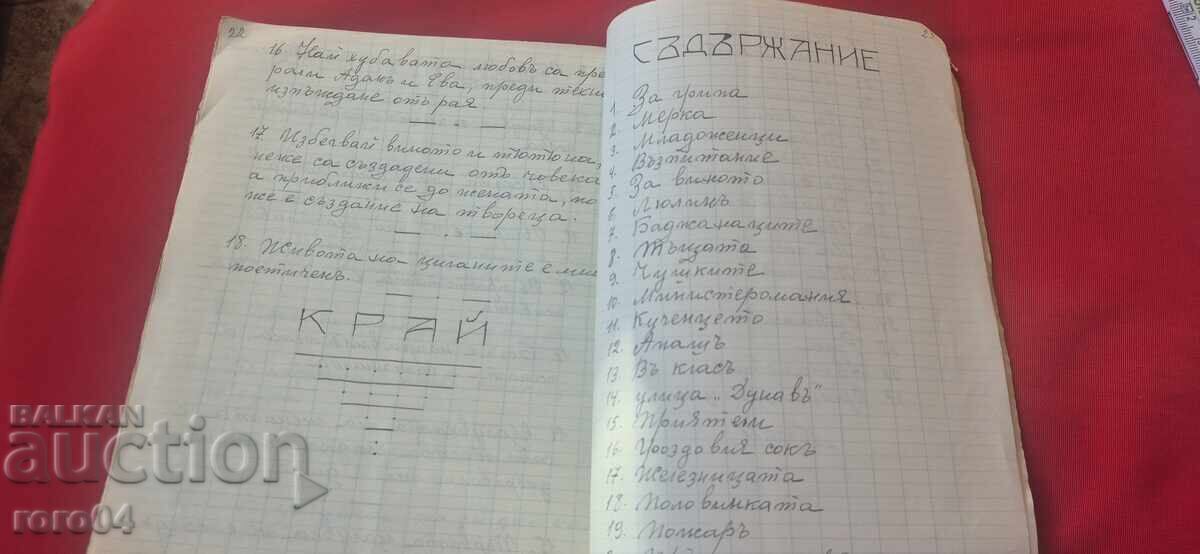 22
16. Най хубавата любовъ са пре
рали Адамъ и Ева, преди техн
изпъждане отъ рая.
17. Избегвай виното и тютюна,
неже са създадени отъ човека
а приближи се до жената, по
же е създание на твореца.
18. Живота на циганите е мил
поетиченъ.
КРАЙ
СЪДЪРЖАНИЕ
1. За грипа
2. Мерка
3. Младоженци
4. Възпитание
5. За виното
6. Люлинъ
7. Баджанаците
8. Тъщата
9. Чушките
10. Министеромания
11. Кученцето
12. Апашъ
13. Въ класъ
14. улица "Дунавъ"
15. Приятели
16. Гроздовия сокъ
17. Железницата
18. Половинката
19. Пожаръ
BALKAN
auction
roro04